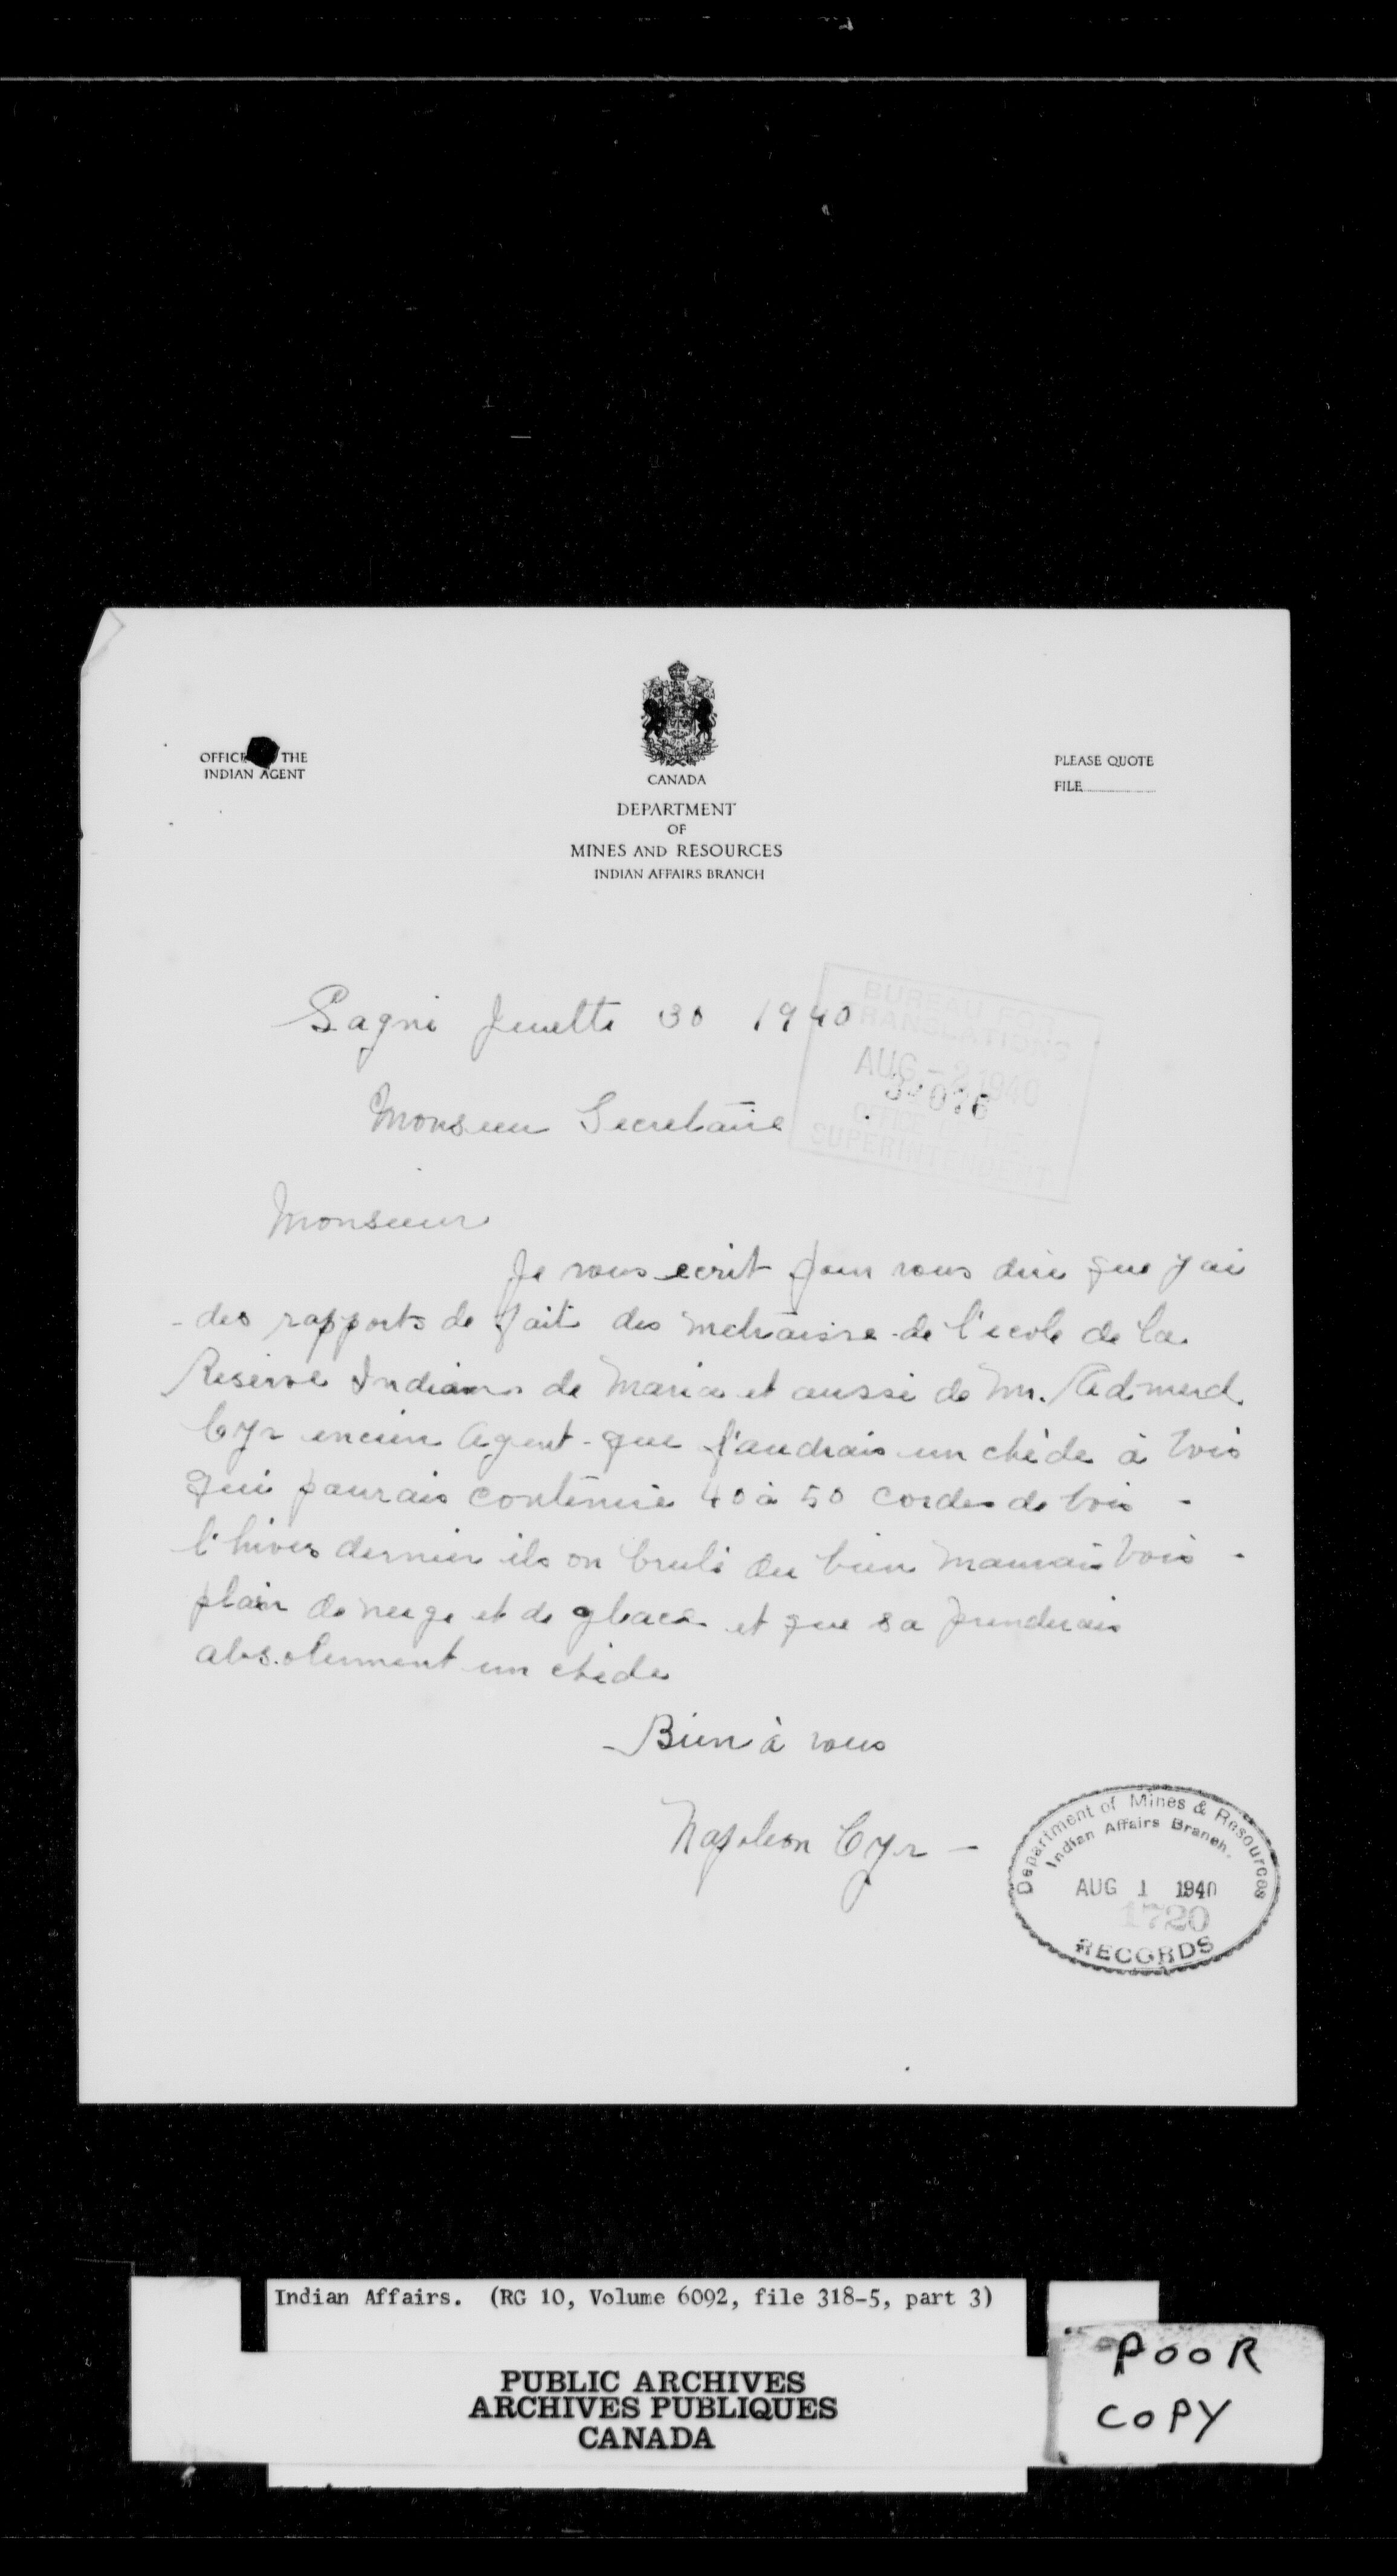 OFFICE THE
INDIAN AGENT
CANADA
DEPARTMENT
OF
MINES AND RESOURCES
INDIAN AFFAIRS BRANCH
PLEASE QUOTE
FILE
Gagné Juiette 30 1940
BUREAU FOR
TRANSLATIONS
AUG - 2 1940
OFFICE OF THE
SUPERINTENDENT
Monsieur Secretaire
Monsieur
Je vous ecrit pour vous dire que j'ai
des rapports de fait des metraisse de l'ecole de la
Reserve Indians de Maria et aussi de Mr. Admerd
Cyr encien Agent - que faudrais un chède à bois
qui pourais contenire 40 à 50 cordes de bois -
l'hiver dernier ils on brulé du bien mauvais bois -
plain de neige et de glace et que sa prenderais
absolument un chede
Bien à vous
Napoleon Cyr -
Department of Mines & Resources
Indian Affairs Branch.
AUG 1 1940
1720
RECORDS
Indian Affairs. (RG 10, Volume 6092, file 318-5, part 3)
PUBLIC ARCHIVES
ARCHIVES PUBLIQUES
CANADA
POOR
COPY